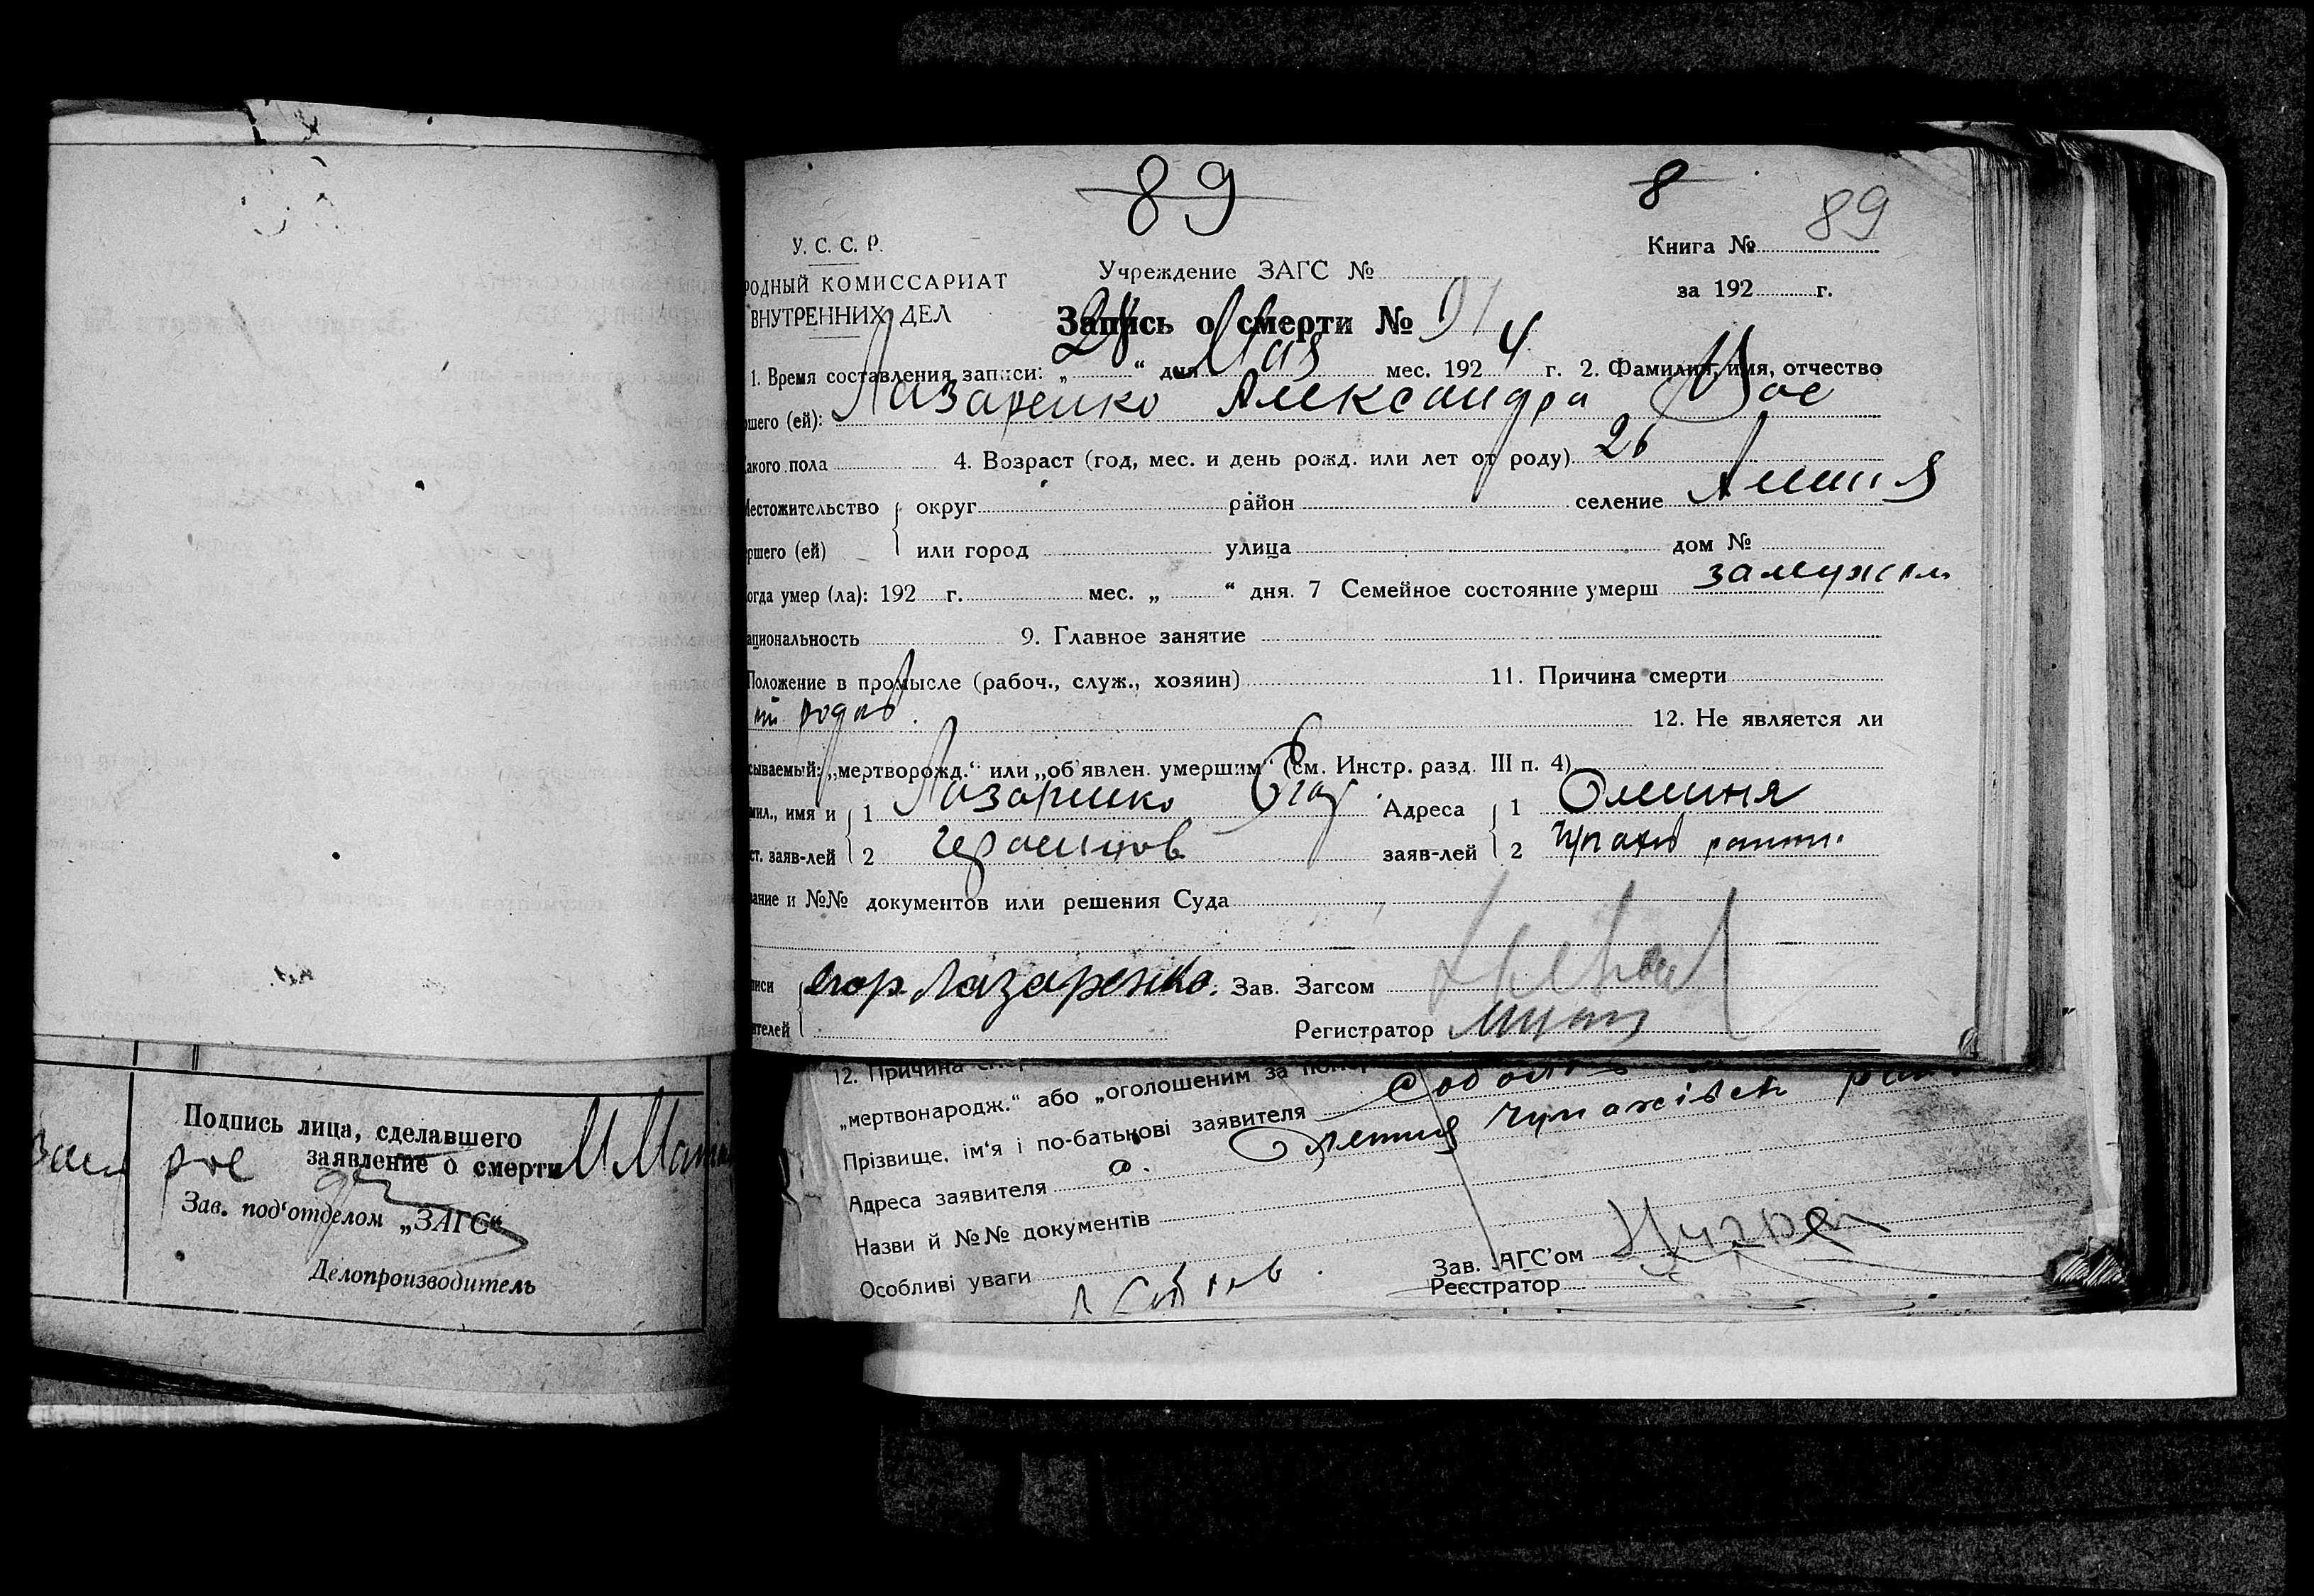 89
8
89
У. С. С. Р.
РОДНЫЙ КОМИССАРИАТ
ВНУТРЕННИХ ДЕЛ
Учреждение ЗАГС №
Книга №
за 192 г.
Запись о смерти № 91
1. Время составления записи: „ 28 “ дня Мая мес. 192 4 г. 2. Фамилия, имя, отчество
ршего (ей): Лазаренко Александра
какого пола 4. Возраст (год, мес. и день рожд. или лет от роду) 26
Местожительство округ район селение
ршего (ей) или город улица дом №
огда умер (ла): 192 г. мес. „ “ дня. 7 Семейное состояние умерш замужем
ациональность 9. Главное занятие
Положение в промысле (рабоч., служ., хозяин) 11. Причина смерти
от родов. 12. Не является ли
сываемый: „мертворожд.“ или „об'явлен. умершим“ (см. Инстр. разд. III п. 4)
мил., имя и 1 Лазаренко Адреса 1 Олешня
ст. заяв-лей 2 заяв-лей 2
вание и №№ документов или решения Суда
писи егор Лазаренко. Зав. Загсом
ителей Регистратор
12. Причина
„мертвонародж.“ або „оголошеним за
Прізвище, ім'я і по-батькові заявителя
Адреса заявителя с. Олешня Чупахівськ
Назви й №№ документів
Особливі уваги
Зав. АГС'ом
Реєстратор
Подпись лица, сделавшего
заявление о смерти
Зав. под'отделом „ЗАГС“
Делопроизводитель